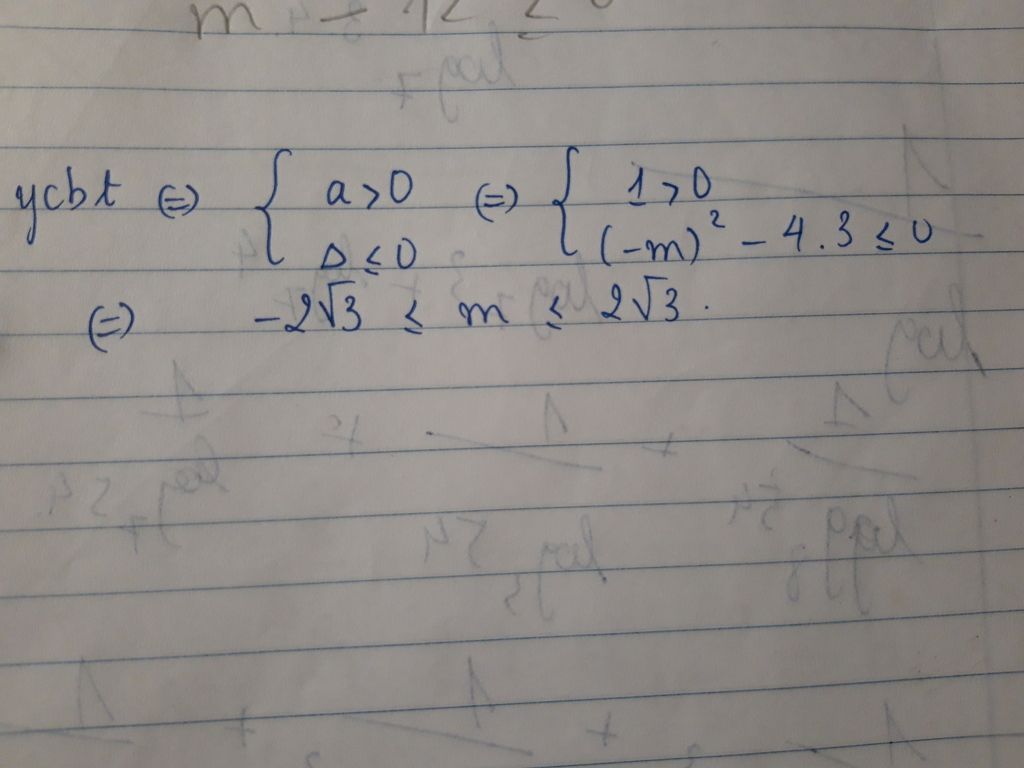 ycbt ⇔ { a > 0 ⇔ { 1 > 0
Δ ≤ 0 (-m)² - 4.3 ≤ 0
⇔ -2√3 ≤ m ≤ 2√3.